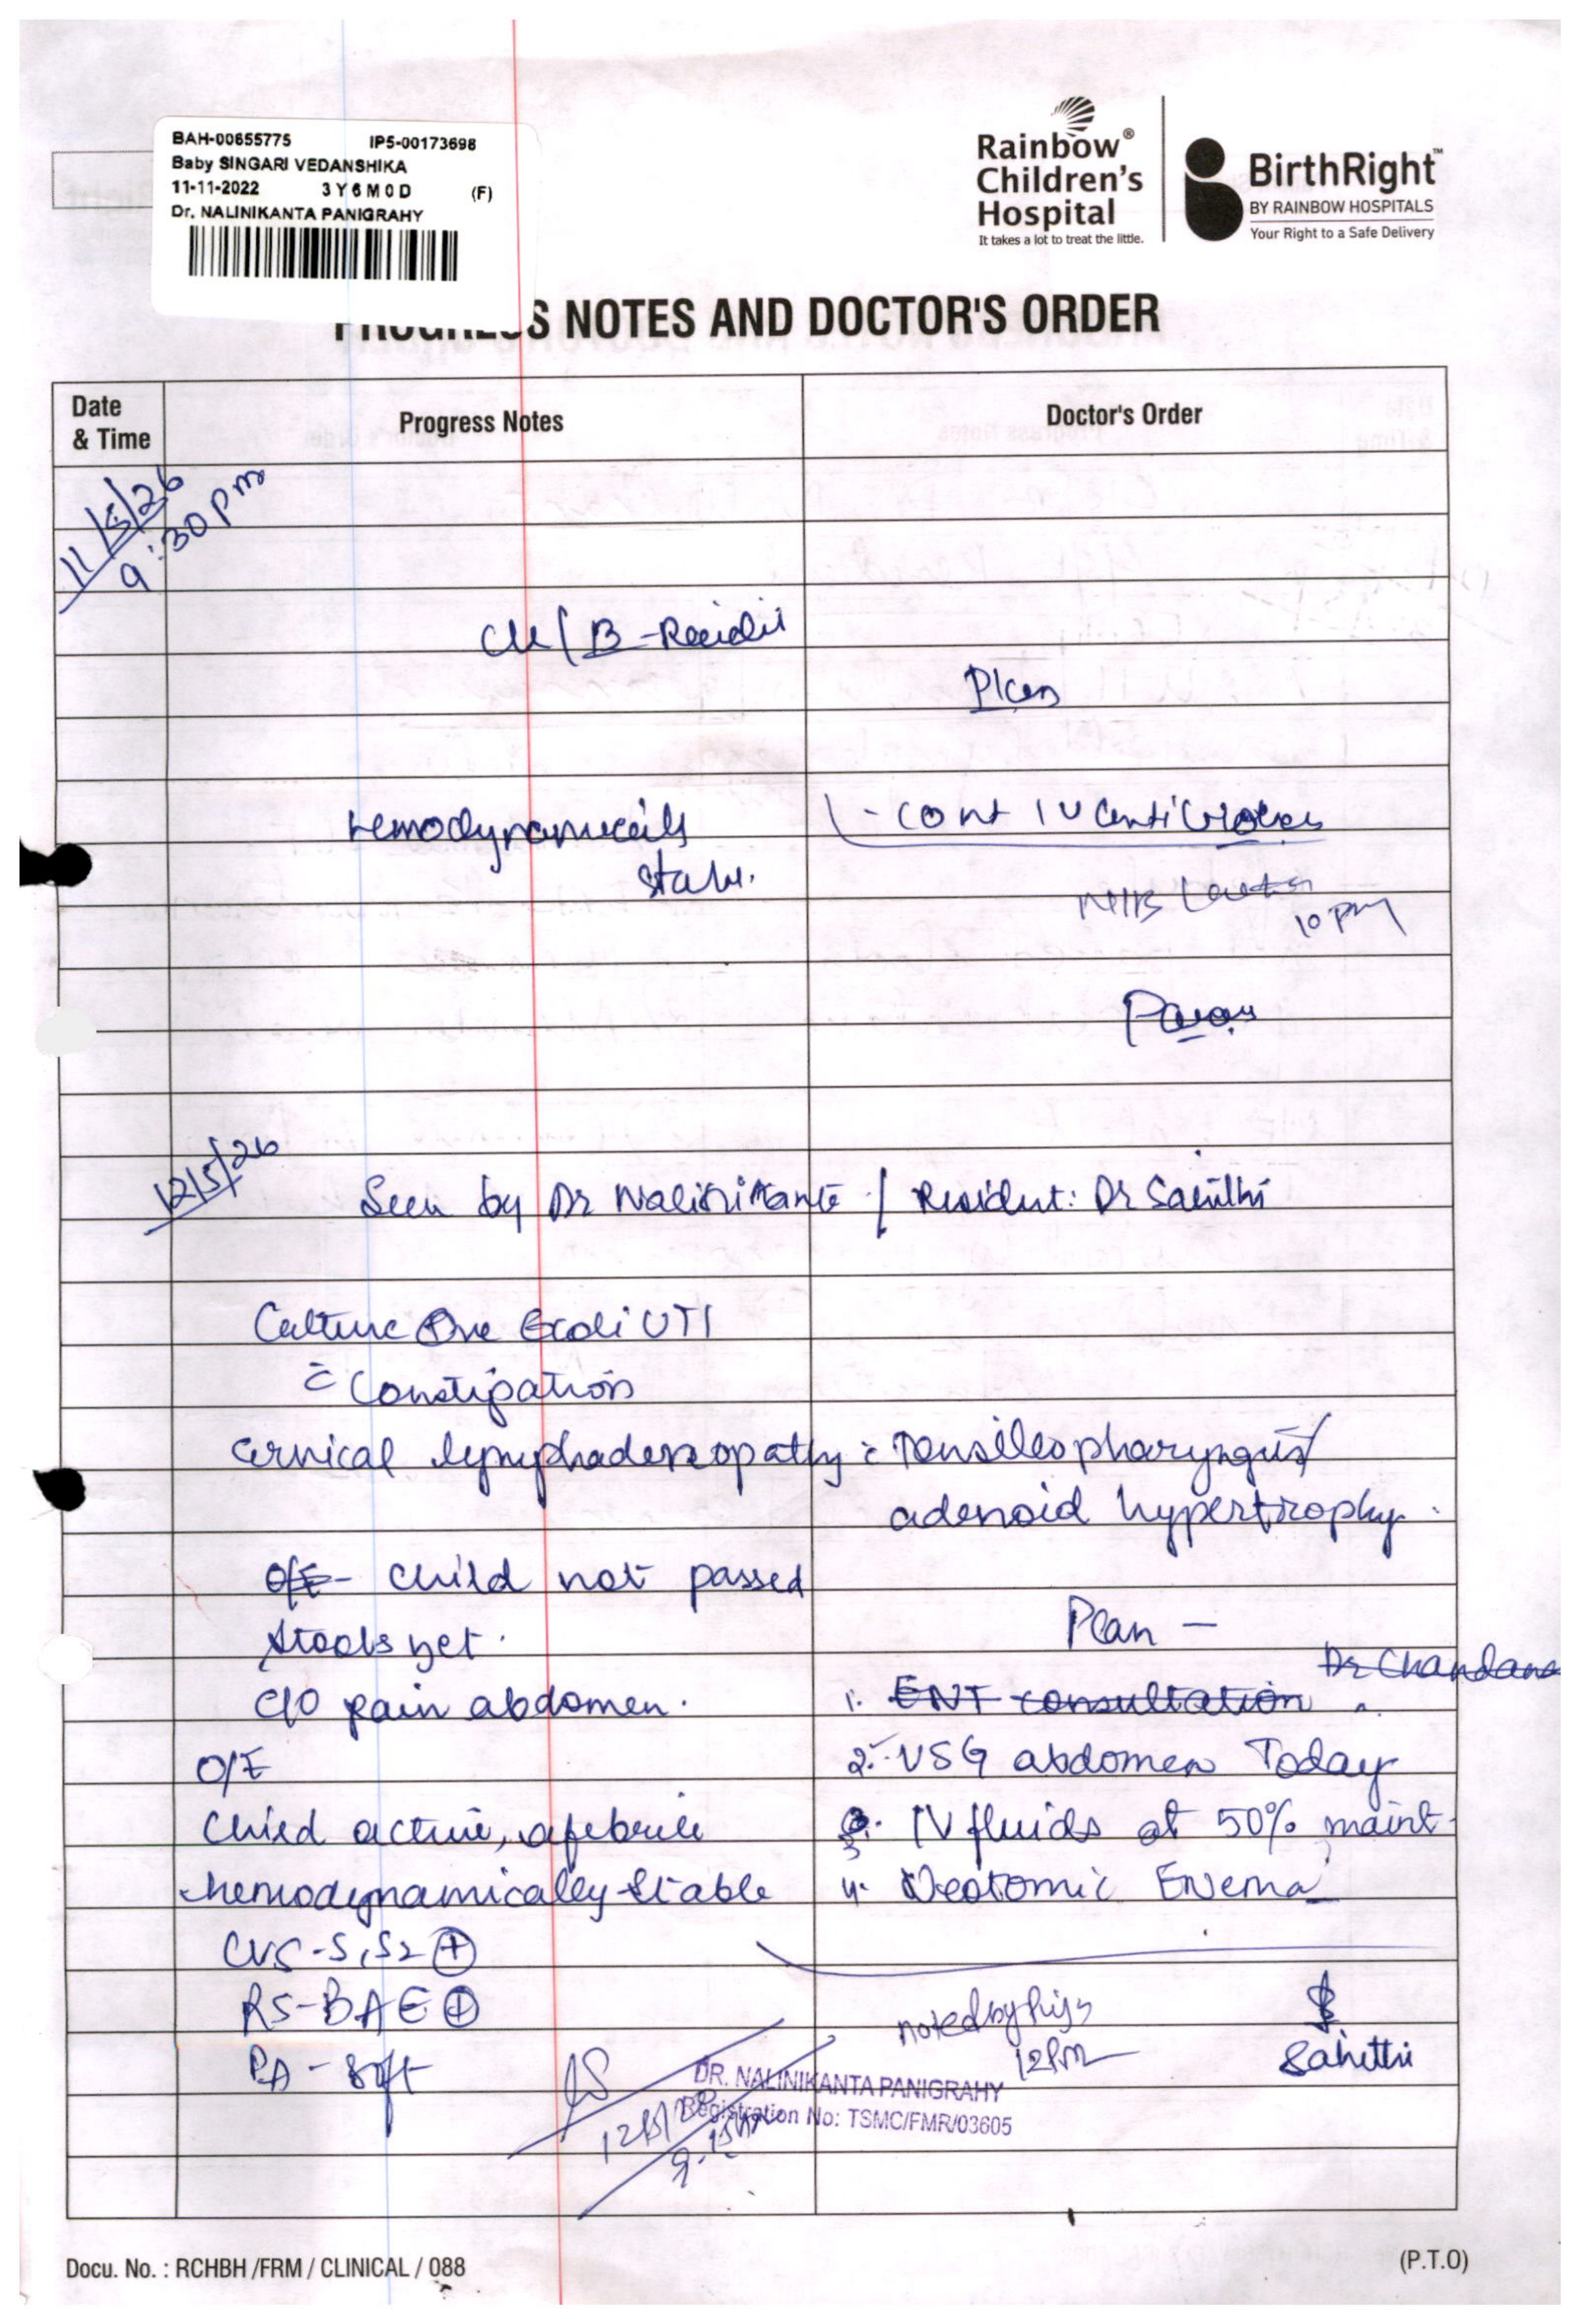 BAH-00655775 IP5-00173698
Baby SINGARI VEDANSHIKA
11-11-2022 3Y6M0D (F)
Dr. NALINIKANTA PANIGRAHY
Rainbow®
Children's
Hospital
It takes a lot to treat the little.
BirthRight™
BY RAINBOW HOSPITALS
Your Right to a Safe Delivery
PROGRESS NOTES AND DOCTOR'S ORDER
Date
& Time
Progress Notes
Doctor's Order
11/5/26
9:30pm
Plan
Hemodynamically
- cont IV antibiotics
10 pm
12/5/26
Seen by Dr Nalinikanta / Resident: Dr Sahithi
Culture ⊕ve Ecoli UTI
c̄ Constipation
cervical lymphadenopathy c̄ Tonsillopharyngitis/
adenoid hypertrophy.
O/E - child not passed
stools yet.
Plan -
Dr Chandana
C/O pain abdomen.
1. ENT consultation
O/E
2. USG abdomen Today
Child active, afebrile
3. IV fluids at 50% maint
hemodynamically stable
4. Neotomic Enema
CVS - S1S2 ⊕
RS - BAE ⊕
PA - soft
noted by
12Pm
Sahithi
DR. NALINIKANTA PANIGRAHY
Registration No: TSMC/FMR/03605
Docu. No. : RCHBH /FRM / CLINICAL / 088
(P.T.O)